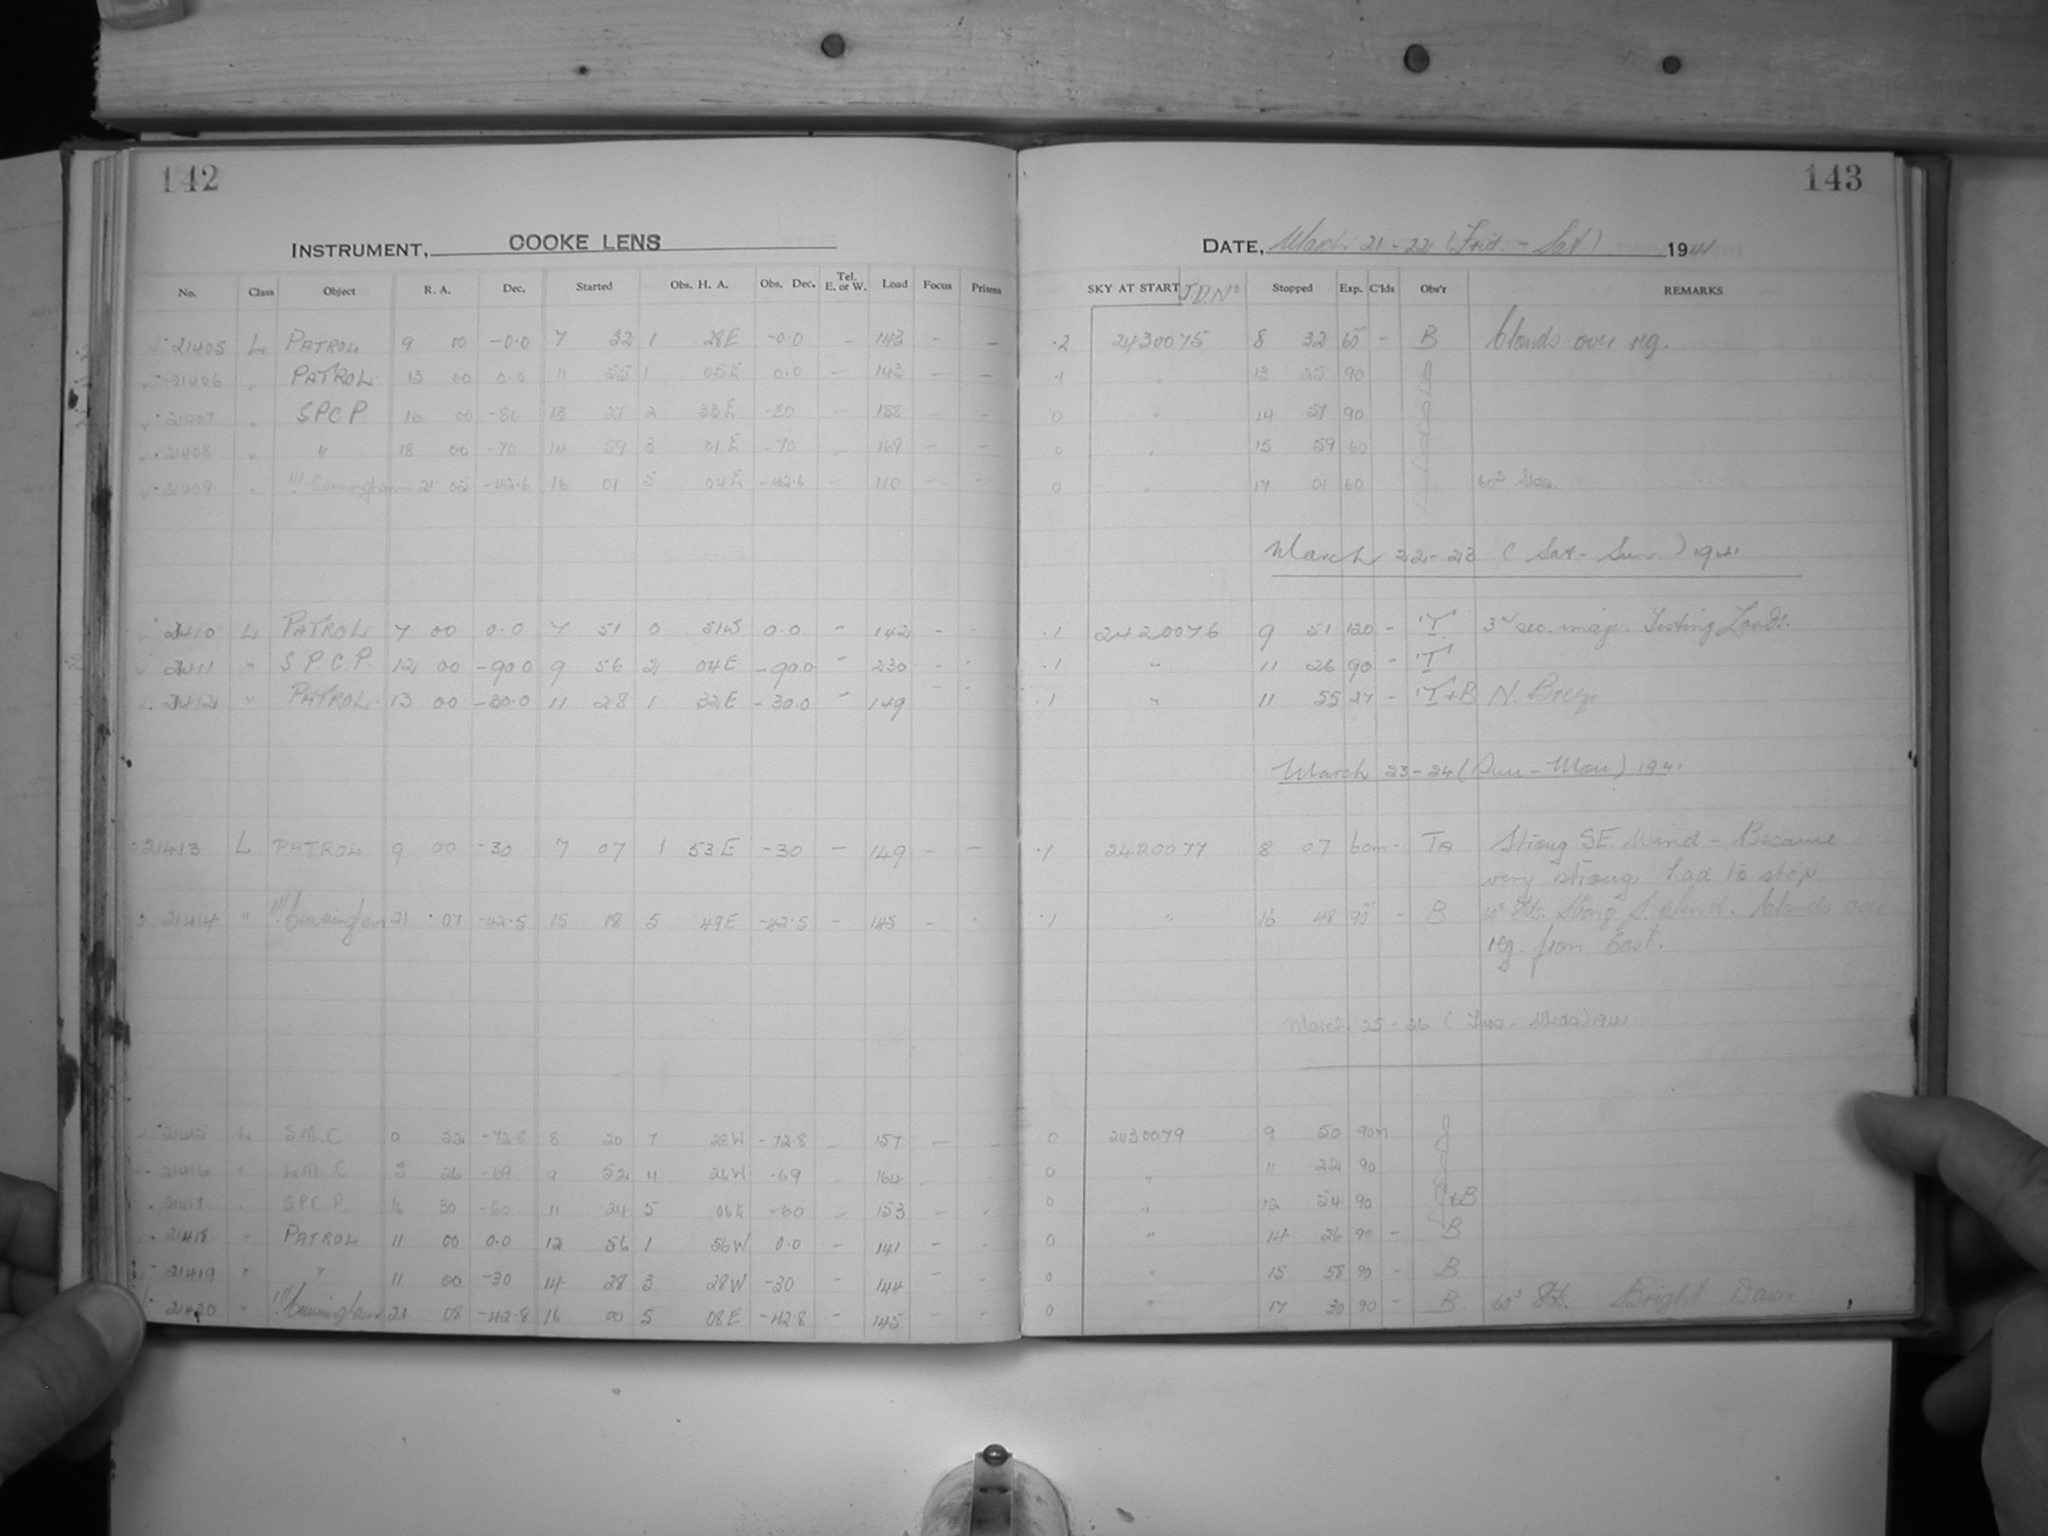 142
INSTRUMENT, COOKE LENS
No. Class Object R. A. Dec. Started Obs. H. A. Obs. Dec. Tel. E. or W. Load Focus Prisms
21405 L PATROL 9 00 -0.0 7 32 1 28E -0.0 - 143 - -
21406 " PATROL 13 00 0.0 11 55 1 05E 0.0 - 143 - -
21407 " SPCP 16 00 -80 13 27 2 33E -80 - 188 - -
21408 " " 18 00 -70 14 59 3 01E -70 - 169 - -
21409 " !!! Cunningham 21 05 -42.6 16 01 5 04E -42.6 - 110 - -
21410 L PATROL 7 00 0.0 7 51 0 51W 0.0 - 142 - -
21411 " S.P.C.P. 12 00 -90.0 9 56 2 04E -90.0 - 230 - -
21412 " PATROL 13 00 -30.0 11 28 1 32E -30.0 - 149 - -
21413 L PATROL 9 00 -30 7 07 1 53E -30 - 149 - -
21414 " !!! Cunningham 21 07 -42.5 15 18 5 49E -42.5 - 145 - -
21415 L S.M.C 0 52 -72.8 8 20 7 28W -72.8 - 157 - -
21416 " L.M.C 5 26 -69 9 52 4 26W -69 164 - -
21417 " SPC P. 16 30 -60 11 24 5 06E -60 - 153 - -
21418 " PATROL 11 00 0.0 12 56 1 56W 0.0 - 141 - -
21419 " " 11 00 -30 14 28 3 28W -30 - 144 - -
21420 " !!! Cunningham 21 08 -42.8 16 00 5 08E -42.8 - 145 - -
143
DATE, March 21-22 (Frid. - Sat.) 1941
SKY AT START J.D.No Stopped Exp. C'lds Obs'r REMARKS
.2 2430075 8 32 60 - B Clouds over reg.
.1 " 13 25 90 J
0 " 14 57 90 J
0 " 15 59 60 J
0 " 17 01 60 J 60s Stds.
March 22-23 (Sat- Sun) 1941
.1 2420076 9 51 120 - 'T' 3" sec. image. Testing Loads.
.1 " 11 26 90 - 'T'
.1 " 11 55 27 - 'T'+B N. Breeze
March 23-24 (Sun - Mon) 1941
.1 2420077 8 07 60m - Ta Strong SE. Wind - Became
very strong had to stop
.1 " 16 48 90 - B 60s Sts. Strong S. Wind. Clouds over
reg. from East.
March 25-26 (Tues - Weds) 1941
0 2430079 9 50 90m J
0 " 11 22 90 J
0 " 12 54 90 J+B
0 " 14 26 90 - B
0 " 15 58 90 - B
0 " 17 30 90 - B 60s Sts. Bright Dawn